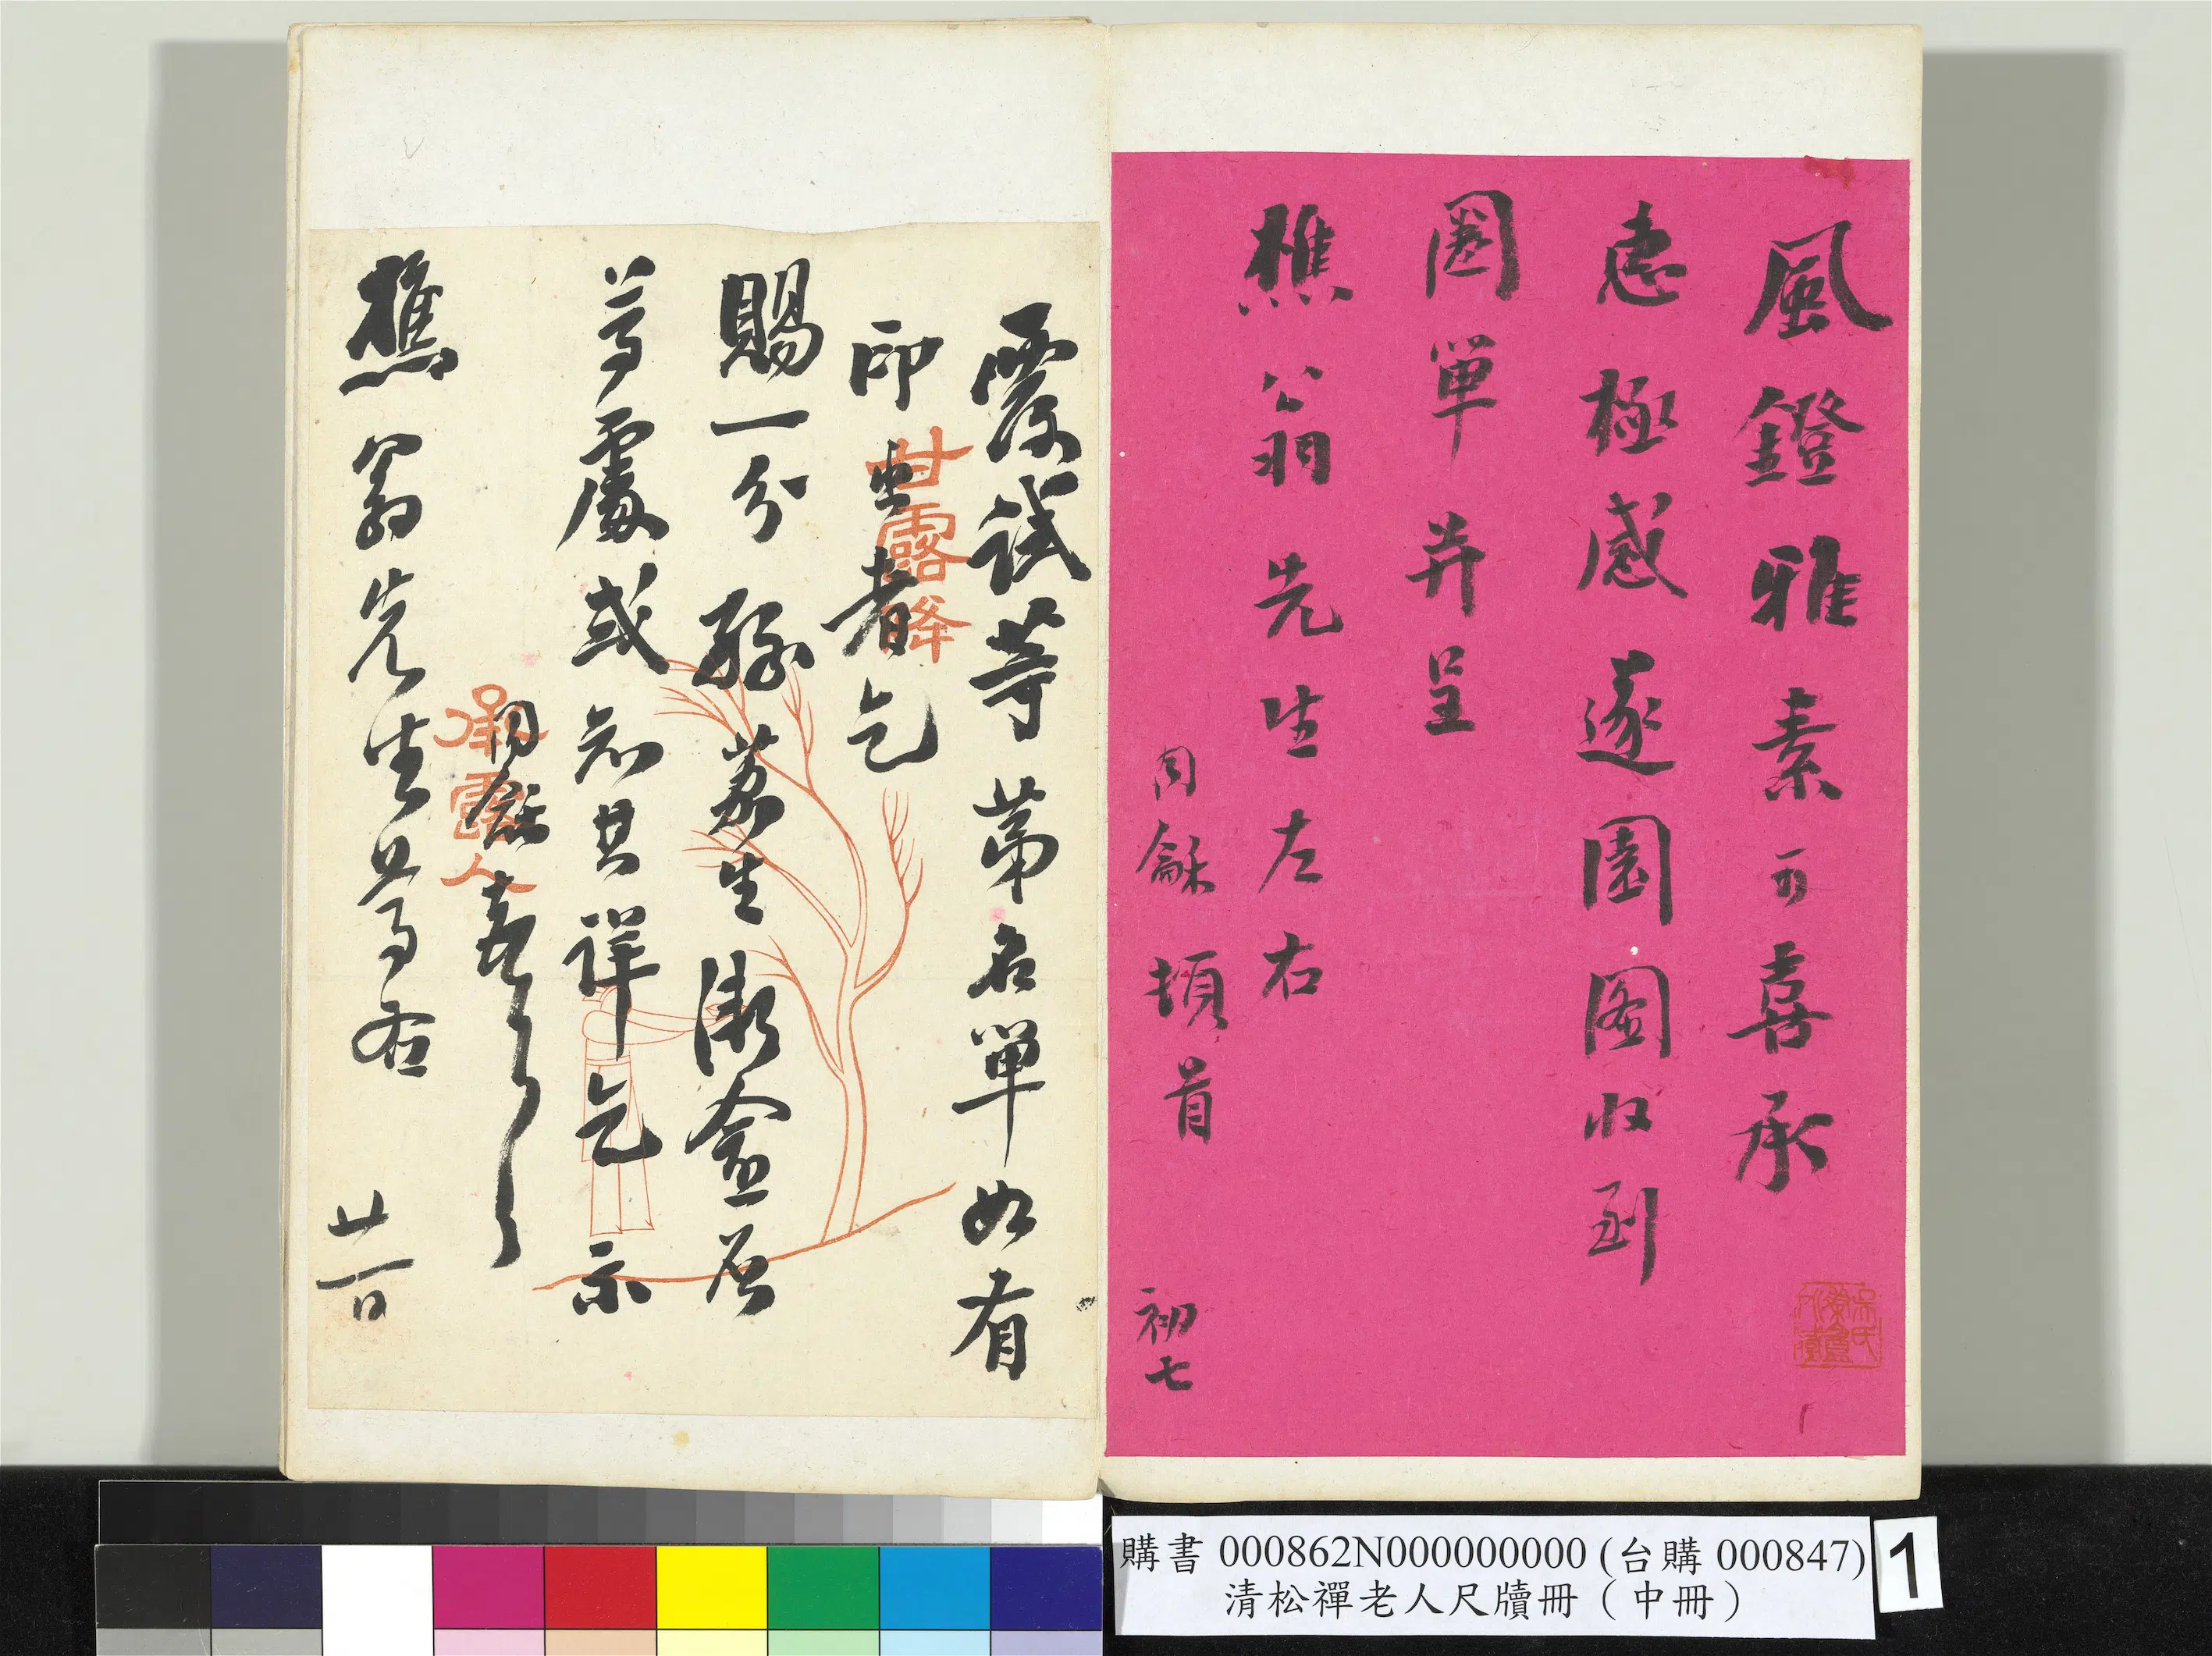 風鐙雅素可喜承
惠極感遂園圖收到
圈單并呈
樵翁先生左右
同龢頓首
初七
吳氏
覆試等第名單如有
印出者乞
賜一分孫荔生澂盦居
等處或知其詳乞示
樵翁先生
廿一日
甘露降
承露人
購書 000862N000000000 (台購 000847)
清松禪老人尺牘冊（中冊）
1